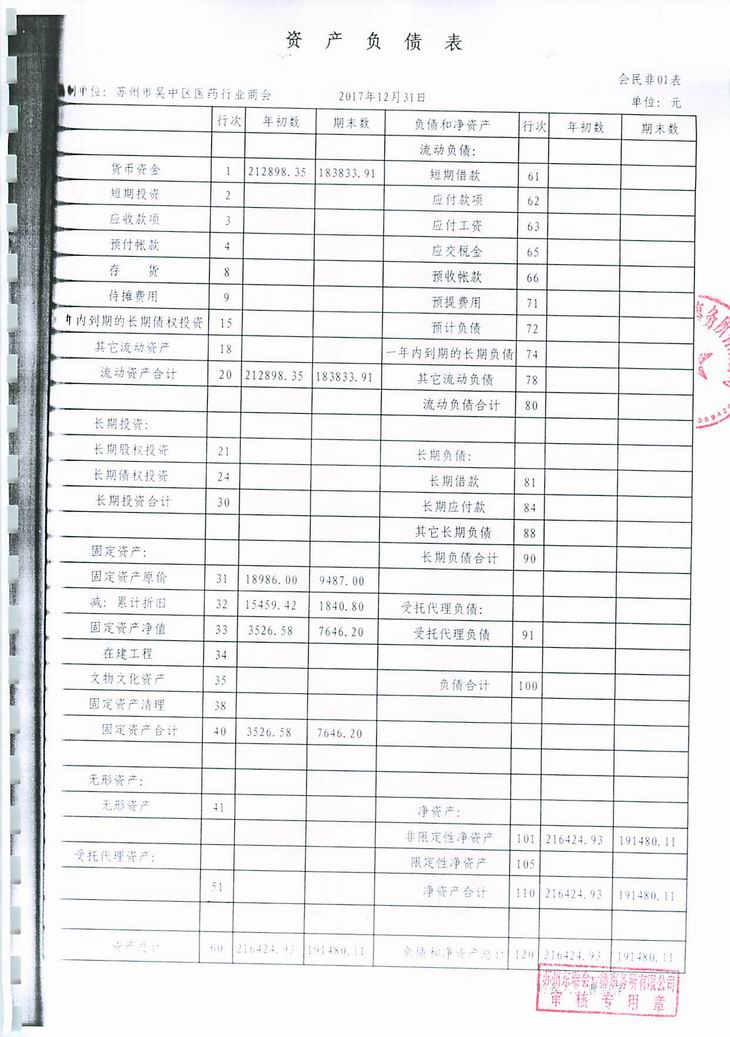 资 产 负 债 表
会民非01表
单位: 苏州市吴中区医药行业商会 2017年12月31日 单位: 元
行次 年初数 期末数 负债和净资产 行次 年初数 期末数
流动负债:
货币资金 1 212898.35 183833.91 短期借款 61
短期投资 2 应付款项 62
应收款项 3 应付工资 63
预付帐款 4 应交税金 65
存 货 8 预收帐款 66
待摊费用 9 预提费用 71
年内到期的长期债权投资 15 预计负债 72
其它流动资产 18 一年内到期的长期负债 74
流动资产合计 20 212898.35 183833.91 其它流动负债 78
流动负债合计 80
长期投资:
长期股权投资 21 长期负债:
长期债权投资 24 长期借款 81
长期投资合计 30 长期应付款 84
其它长期负债 88
固定资产: 长期负债合计 90
固定资产原价 31 18986.00 9487.00
减: 累计折旧 32 15459.42 1840.80 受托代理负债:
固定资产净值 33 3526.58 7646.20 受托代理负债 91
在建工程 34
文物文化资产 35 负债合计 100
固定资产清理 38
固定资产合计 40 3526.58 7646.20
无形资产:
无形资产 41 净资产:
非限定性净资产 101 216424.93 191480.11
受托代理资产: 限定性净资产 105
51 净资产合计 110 216424.93 191480.11
资产总计 60 216424.93 191480.11 负债和净资产总计 120 216424.93 191480.11
事务所
审 核 专 用 章